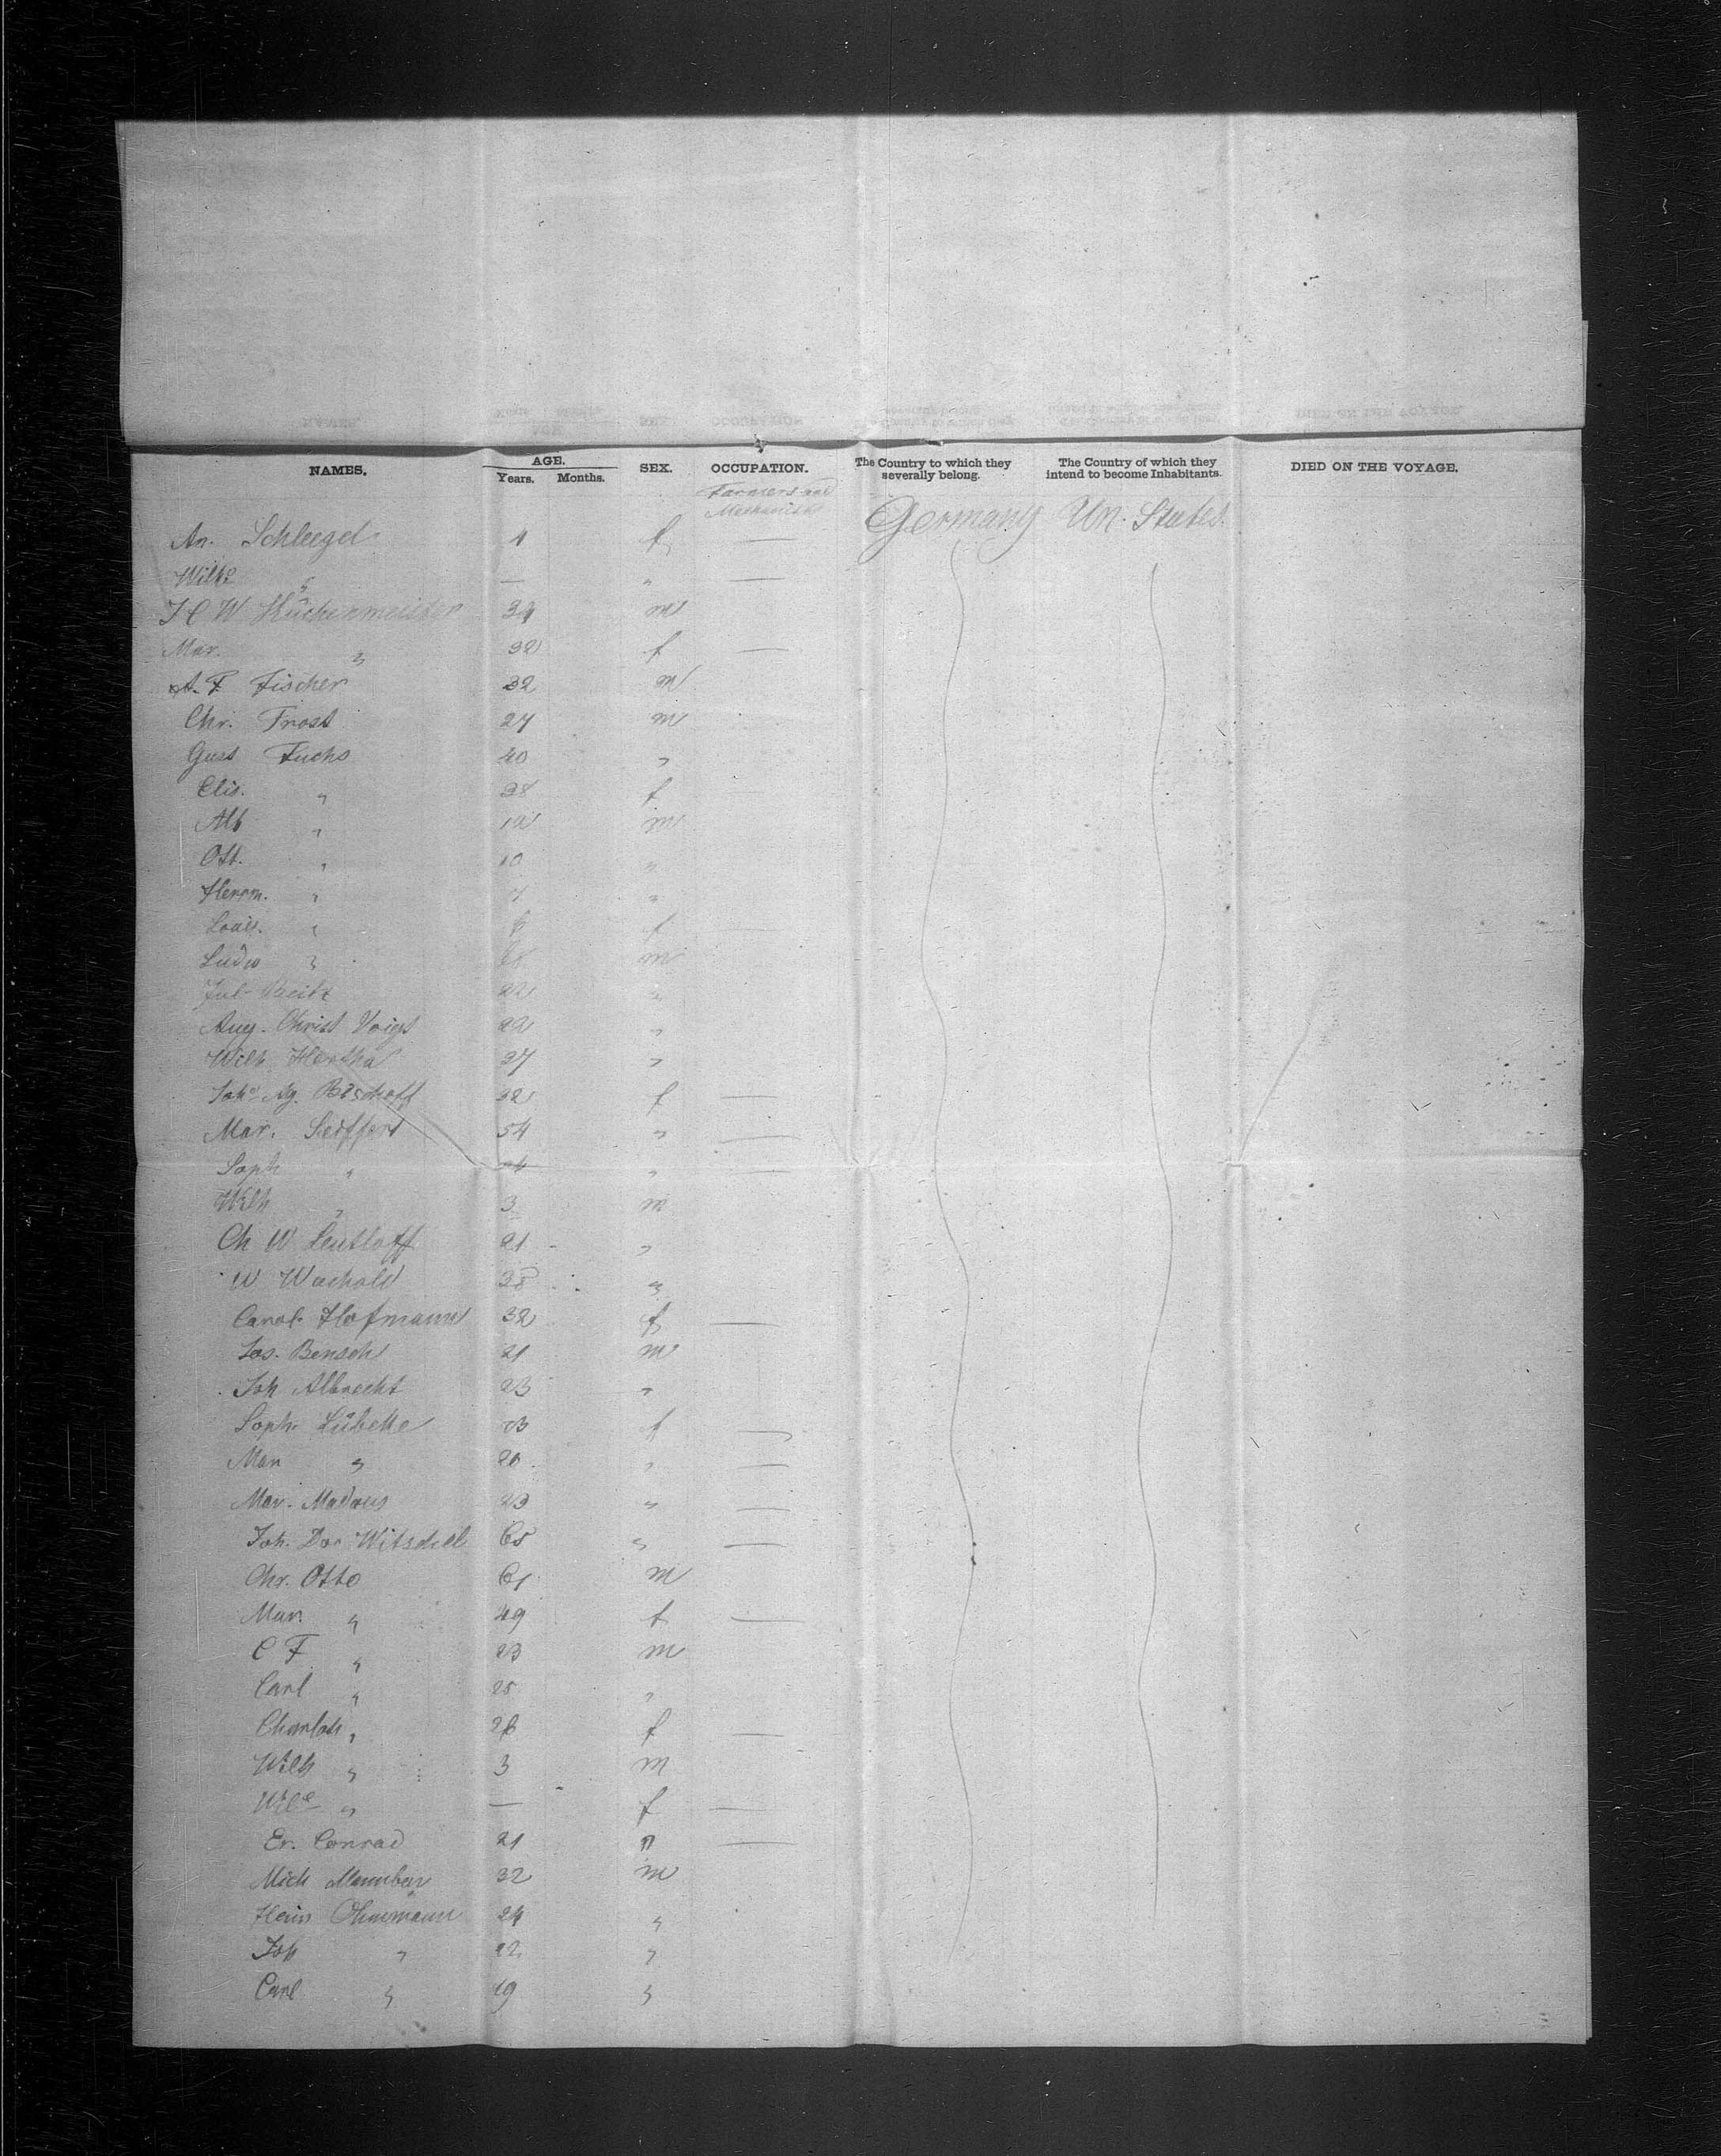 NAMES. AGE. SEX. OCCUPATION. The Country to which they severally belong. The Country of which they intend to become Inhabitants. DIED ON THE VOYAGE.
Years. Months.
Farmers and Mechanics
Germany Un. States.
An. Schleegel 4 f —
Wilhe " — " —
J C W Küchenmeister 34 m
Mar. " 32 f —
A. F. Fischer 32 m
Chr. Frost 27 m
Gust Fuchs 40 "
Elis. " 38 f
Alb " m
Ott. " 10 "
Herrm. " 7 "
Louis. " f
Ludw " m
Jul. 22 "
Aug. Christ Voigt 22 "
Wilh Hertha 27 "
Johe Ag. Bischoff 32 f —
Mar. Seiffert 54 " —
Soph " 24 " —
Wilh " 3 m
Ch W Leutloff 21 "
W Wachold 38 "
Carol. Hofmann 32 f —
Jos. Bensch 21 m
Joh Albrecht 23 "
Soph. Lübette 23 f —
Mar " " —
Mar. Madaus 23 " —
Joh. Dor Witschel 65 " —
Chr. Otto 61 m
Mar. " 49 f —
C F " 23 m
Carl " 25 "
Charlott " 26 f —
Wilh " 3 m
Wile " — f —
Er. Conrad 21 " —
Mich 32 m
Hein Ohnemann 24 "
Joh " 22 "
Carl " 19 "